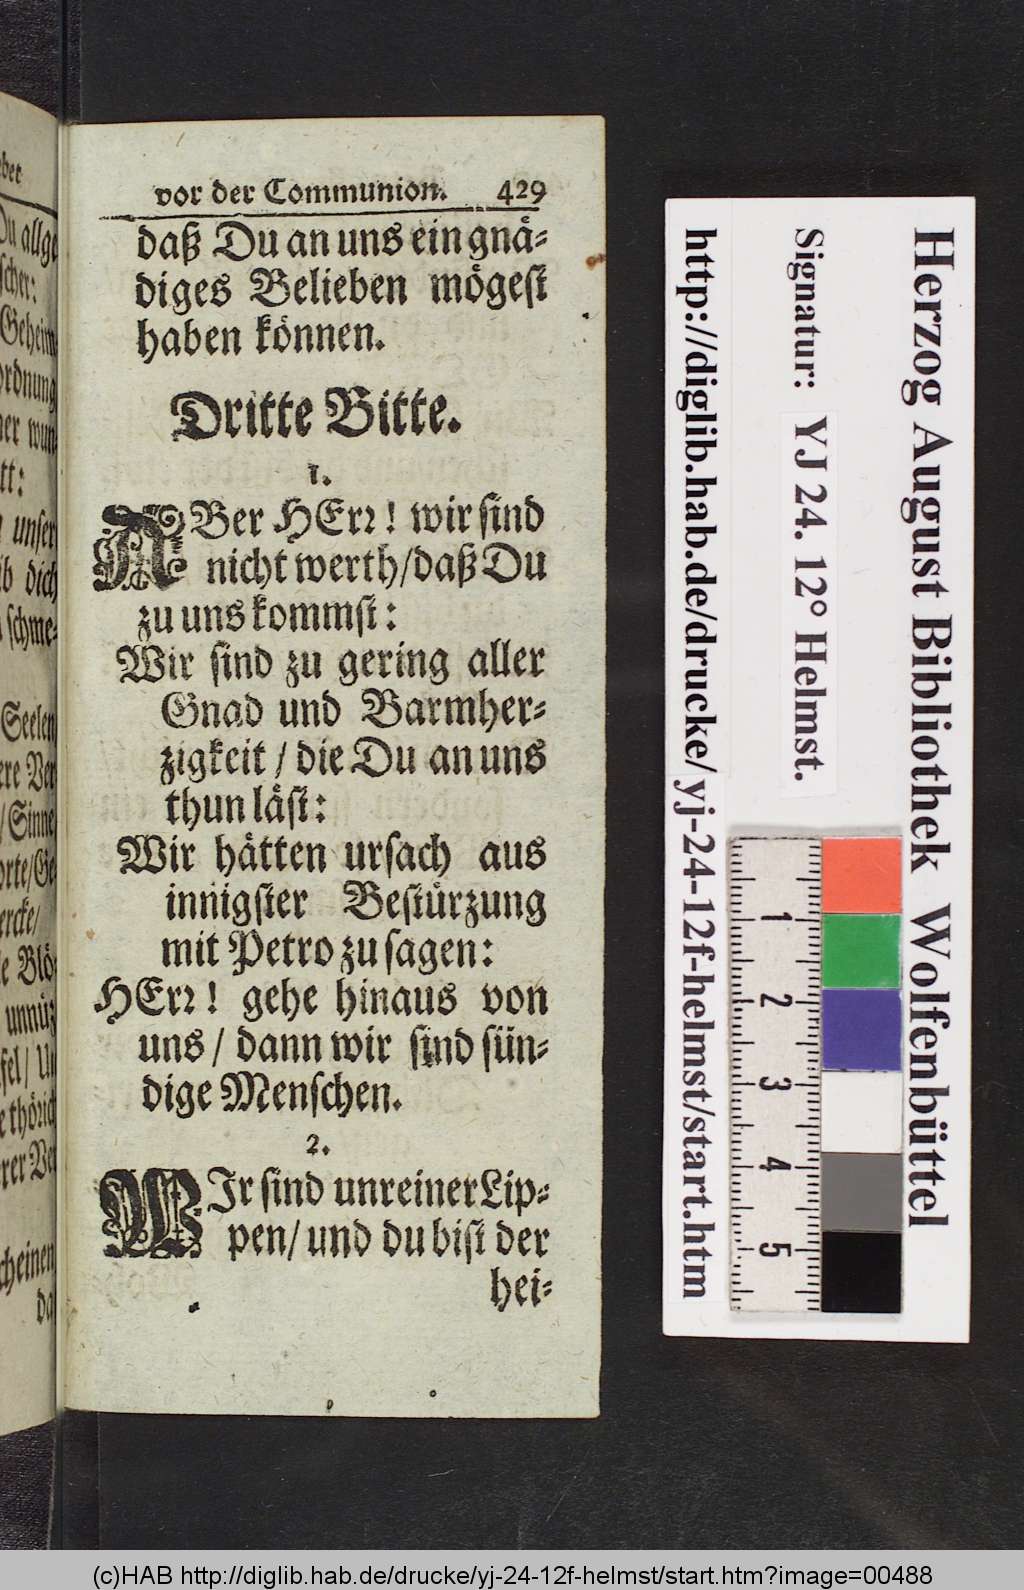 vor der Communion. 429
daß Du an uns ein gnä-
diges Belieben mögest
haben können.
Dritte Bitte.
1.
ABer HErr! wir sind
nicht werth/daß Du
zu uns kommst:
Wir sind zu gering aller
Gnad und Barmher-
zigkeit / die Du an uns
thun läst:
Wir hätten ursach aus
innigster Bestürzung
mit Petro zu sagen:
HErr! gehe hinaus von
uns / dann wir sind sün-
dige Menschen.
2.
WJr sind unreiner Lip-
pen/ und du bist der
hei-
Herzog August Bibliothek Wolfenbüttel
Signatur: YJ 24. 12° Helmst.
http://diglib.hab.de/drucke/yj-24-12f-helmst/start.htm
1
2
3
4
5
(c)HAB http://diglib.hab.de/drucke/yj-24-12f-helmst/start.htm?image=00488